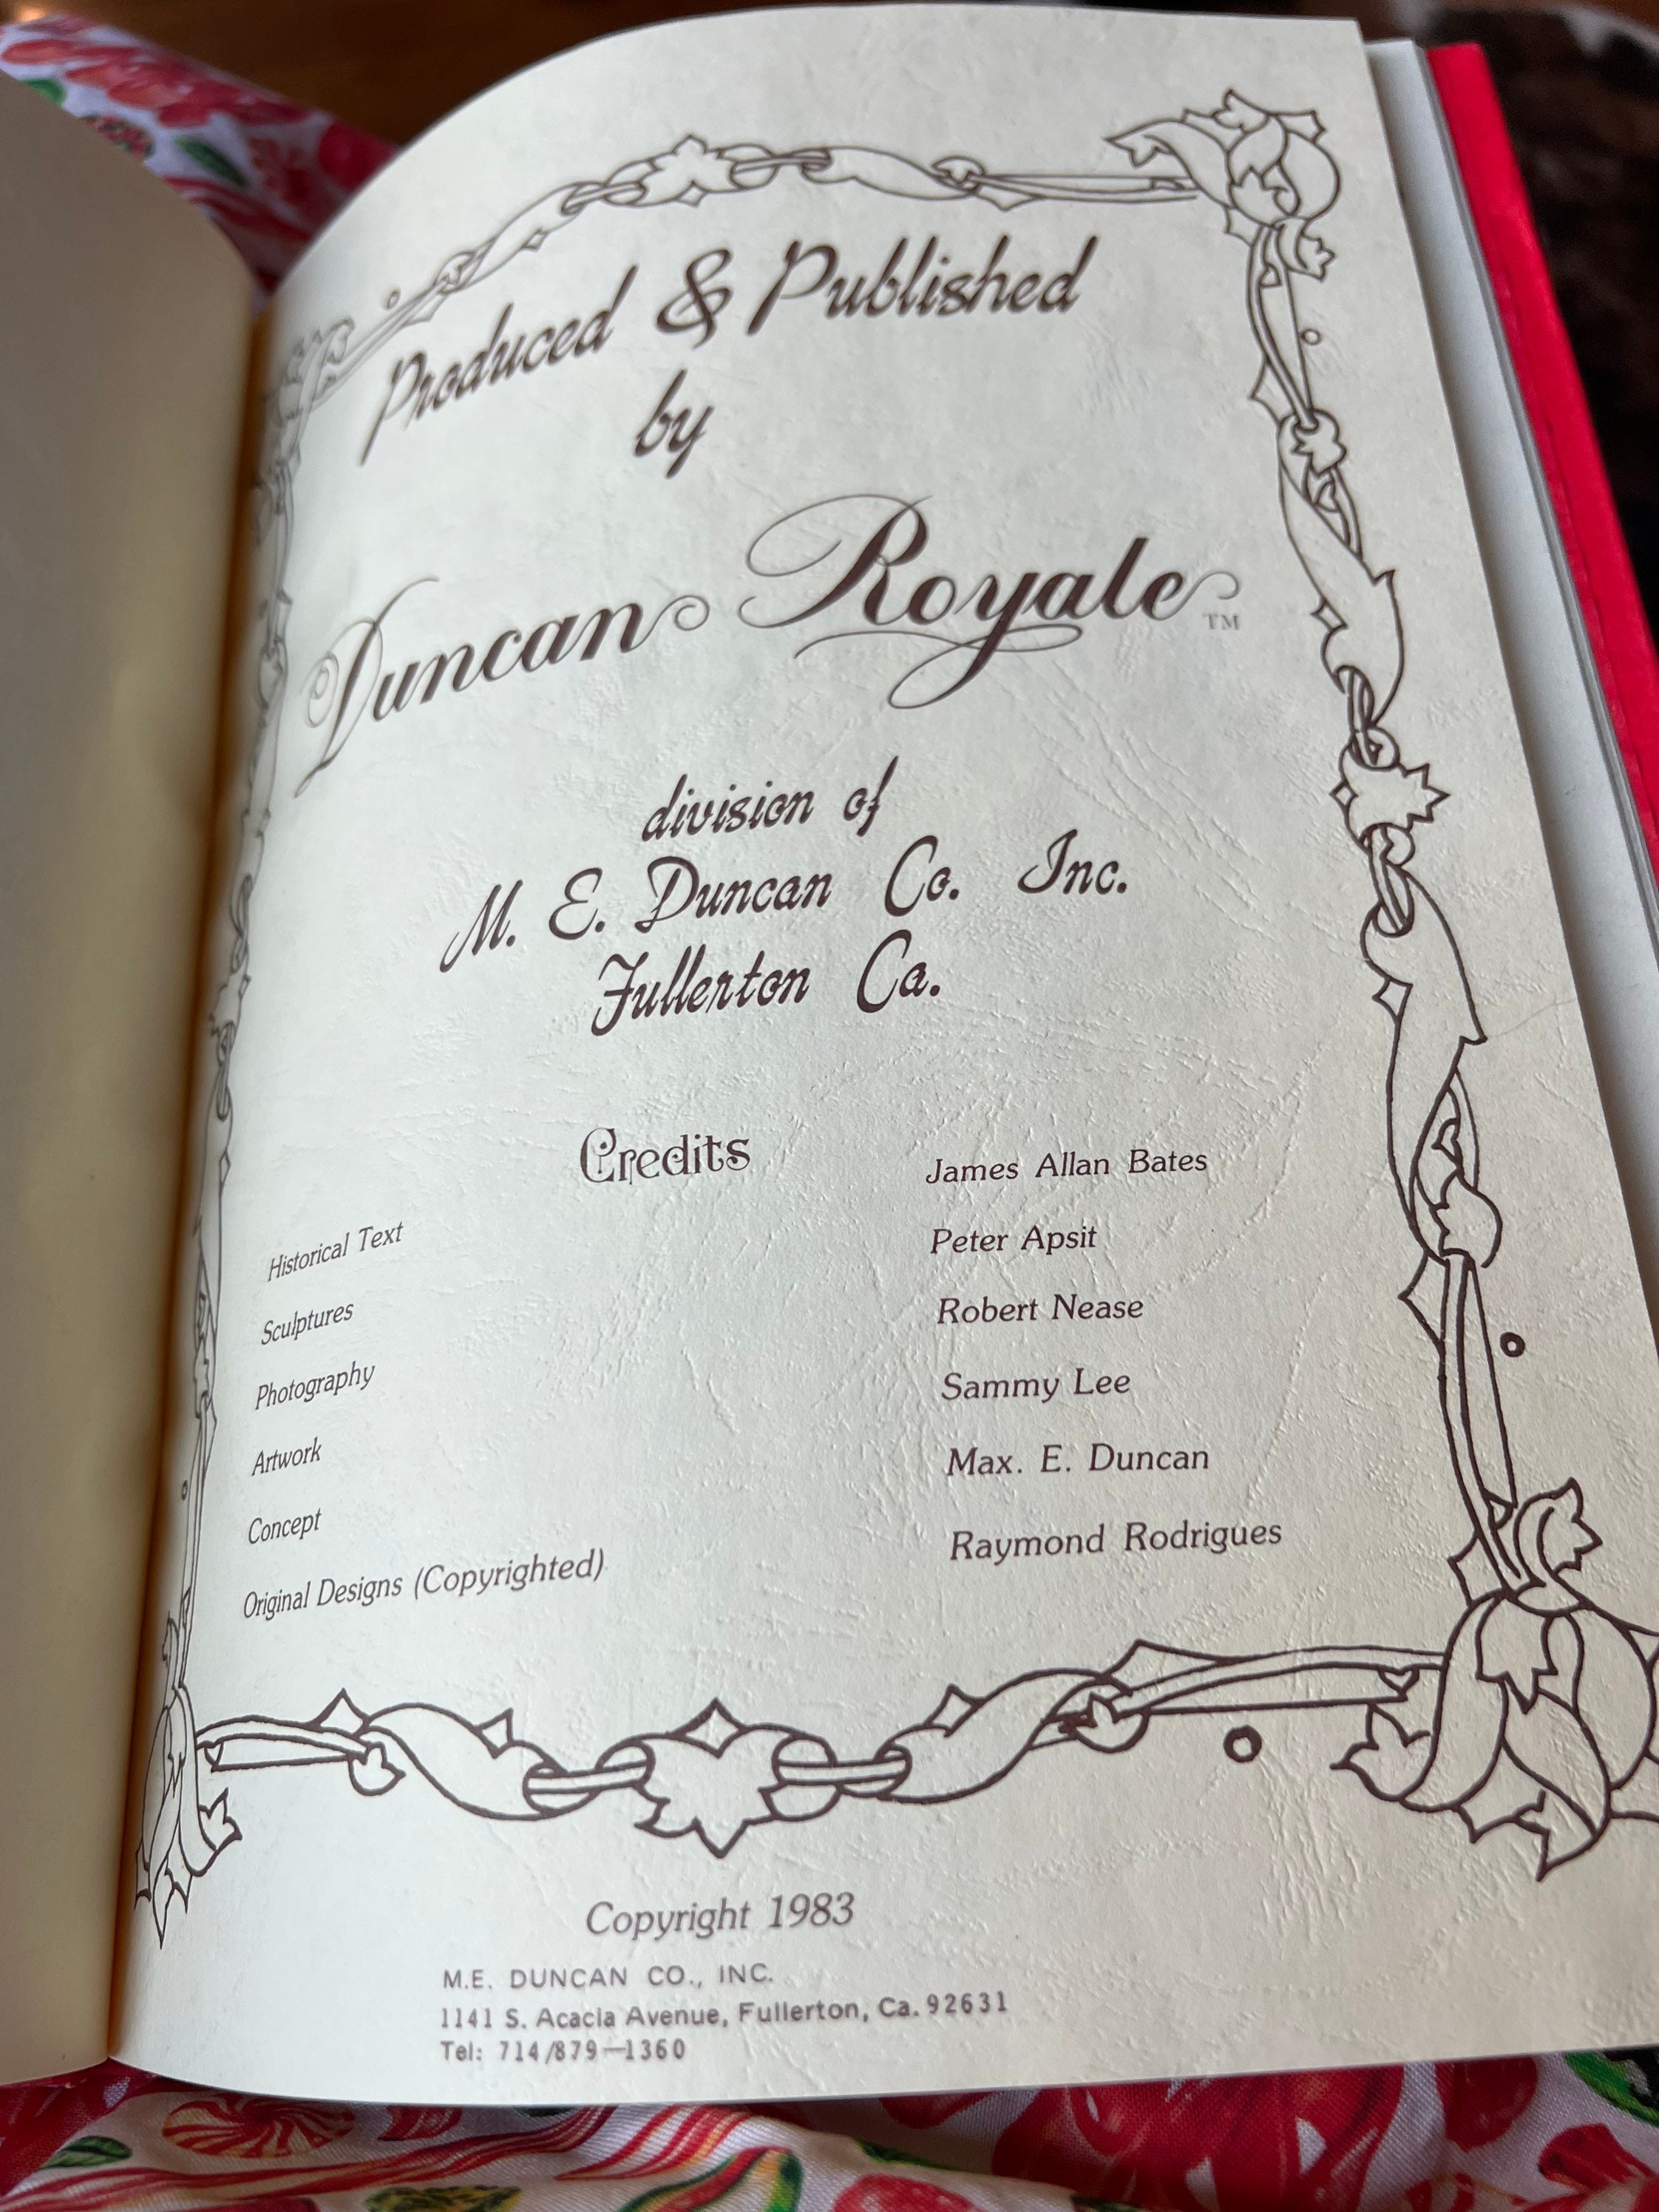 Produced & Published
by
Duncan Royale™
division of
M. E. Duncan Co. Inc.
Fullerton Ca.
Credits
Historical Text James Allan Bates
Sculptures Peter Apsit
Photography Robert Nease
Artwork Sammy Lee
Concept Max. E. Duncan
Original Designs (Copyrighted) Raymond Rodrigues
Copyright 1983
M.E. DUNCAN CO., INC.
1141 S. Acacia Avenue, Fullerton, Ca. 92631
Tel: 714/879—1360